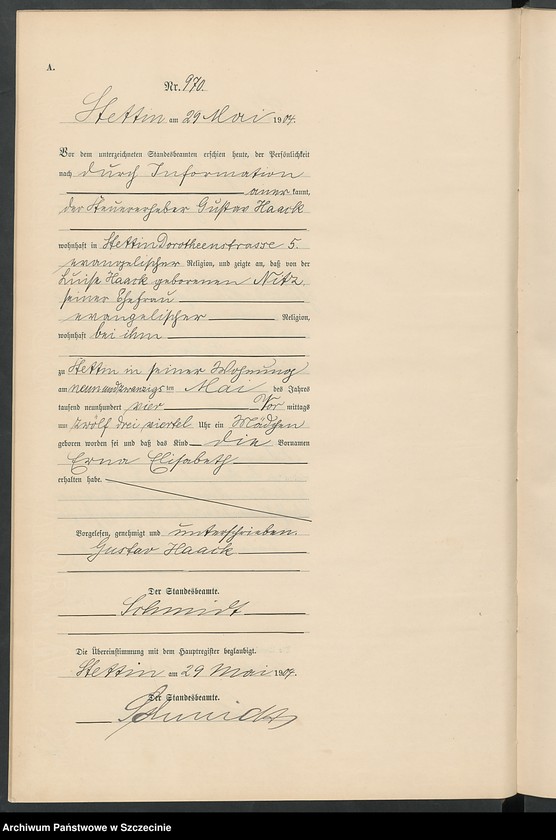 A.
Nr. 970.
Stettin am 29 Mai 1904.
Vor dem unterzeichneten Standesbeamten erschien heute, der Persönlichkeit
nach durch Information
aner kannt,
der Steuererheber Gustav Haack
wohnhaft in Stettin Dorotheenstrasse 5.
evangelischer Religion, und zeigte an, daß von der
Luise Haack geborenen Nitz,
seiner Ehefrau
evangelischer Religion,
wohnhaft bei ihm
zu Stettin in seiner Wohnung
am neunundzwanzigsten Mai des Jahres
tausend neunhundert vier Vor mittags
um zwölf drei viertel Uhr ein Mädchen
geboren worden sei und daß das Kind die Vornamen
Erna Elisabeth
erhalten habe.
Vorgelesen, genehmigt und unterschrieben.
Gustav Haack
Der Standesbeamte.
Schmidt
Die Übereinstimmung mit dem Hauptregister beglaubigt.
Stettin am 29 Mai 1904.
Der Standesbeamte.
Schmidt
Archiwum Państwowe w Szczecinie